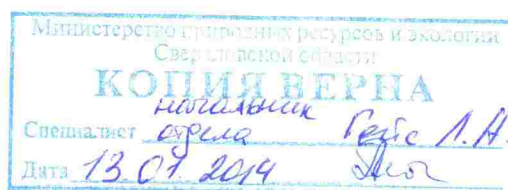 Министерство природных ресурсов и экологии
Свердловской области
КОПИЯ ВЕРНА
начальник
Специалист отдела Л.А.
Дата 13.01.2014